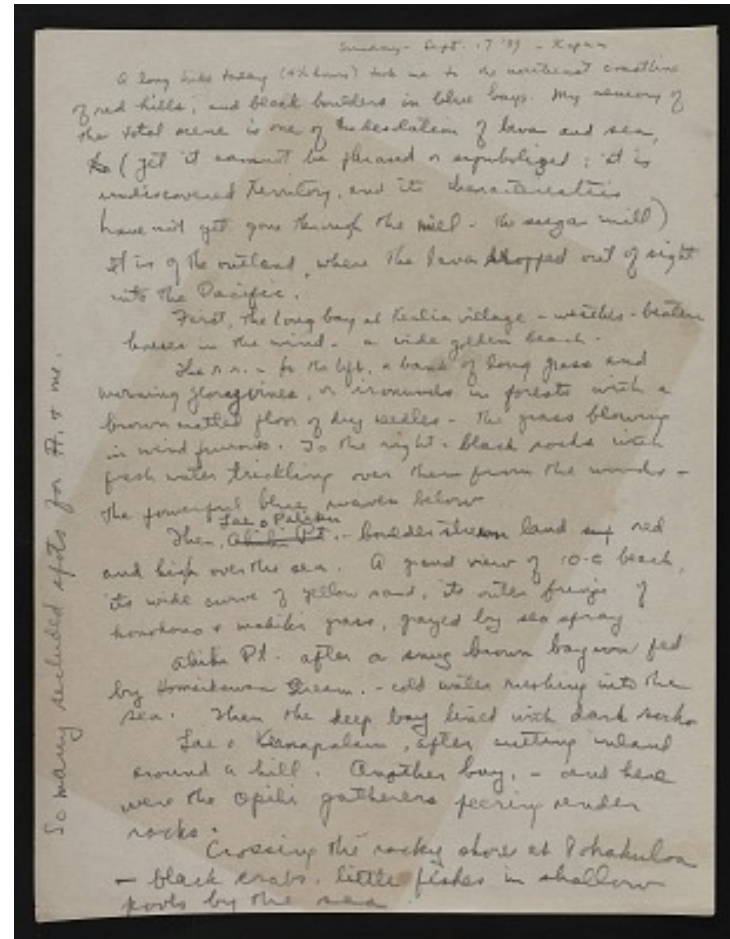 Sunday - Sept. 17 '39 - Kapaa
A long hike today (4½ hours) took me to the northeast coastline
of red hills, and black boulders in blue bays. My memory of
the total scene is one of the desolation of lava and sea,
(yet it cannot be phrased or symbolized; it is
undiscovered territory, and its characteristics
have not yet gone through the mill - the sugar mill)
It is of the outland, where the lava dropped out of sight
into the Pacific.
First, the long bay at Kealia village - weather-beaten
houses in the wind - a wide golden beach.
The r.r. - to the left, a bank of long grass and
morning glory vines, or ironwoods in forests with a
brown matted floor of dry needles - the grass blowing
in wind furrows. To the right - black rocks with
fresh water trickling over them from the woods -
the powerful blue waves below
Lae o Paliku
Then, Ahihi Pt. - boulder strewn land red
and high over the sea. A grand view of 10-C beach,
its wide curve of yellow sand, its outer fringe of
honohono & makiki grass, grayed by sea spray
Ahihi Pt. after a snug brown bay fed
by Homaikawaa Stream. - cold water rushing into the
sea. Then the deep bay lined with dark rocks
Lae o Kamapalani, after cutting inland
around a hill. Another bay, - and here
were the opihi gatherers peering under
rocks.
Crossing the rocky shore at Pohakuloa
- black crabs, little fishes in shallow
pools by the sea
So many secluded spots for H. & me.